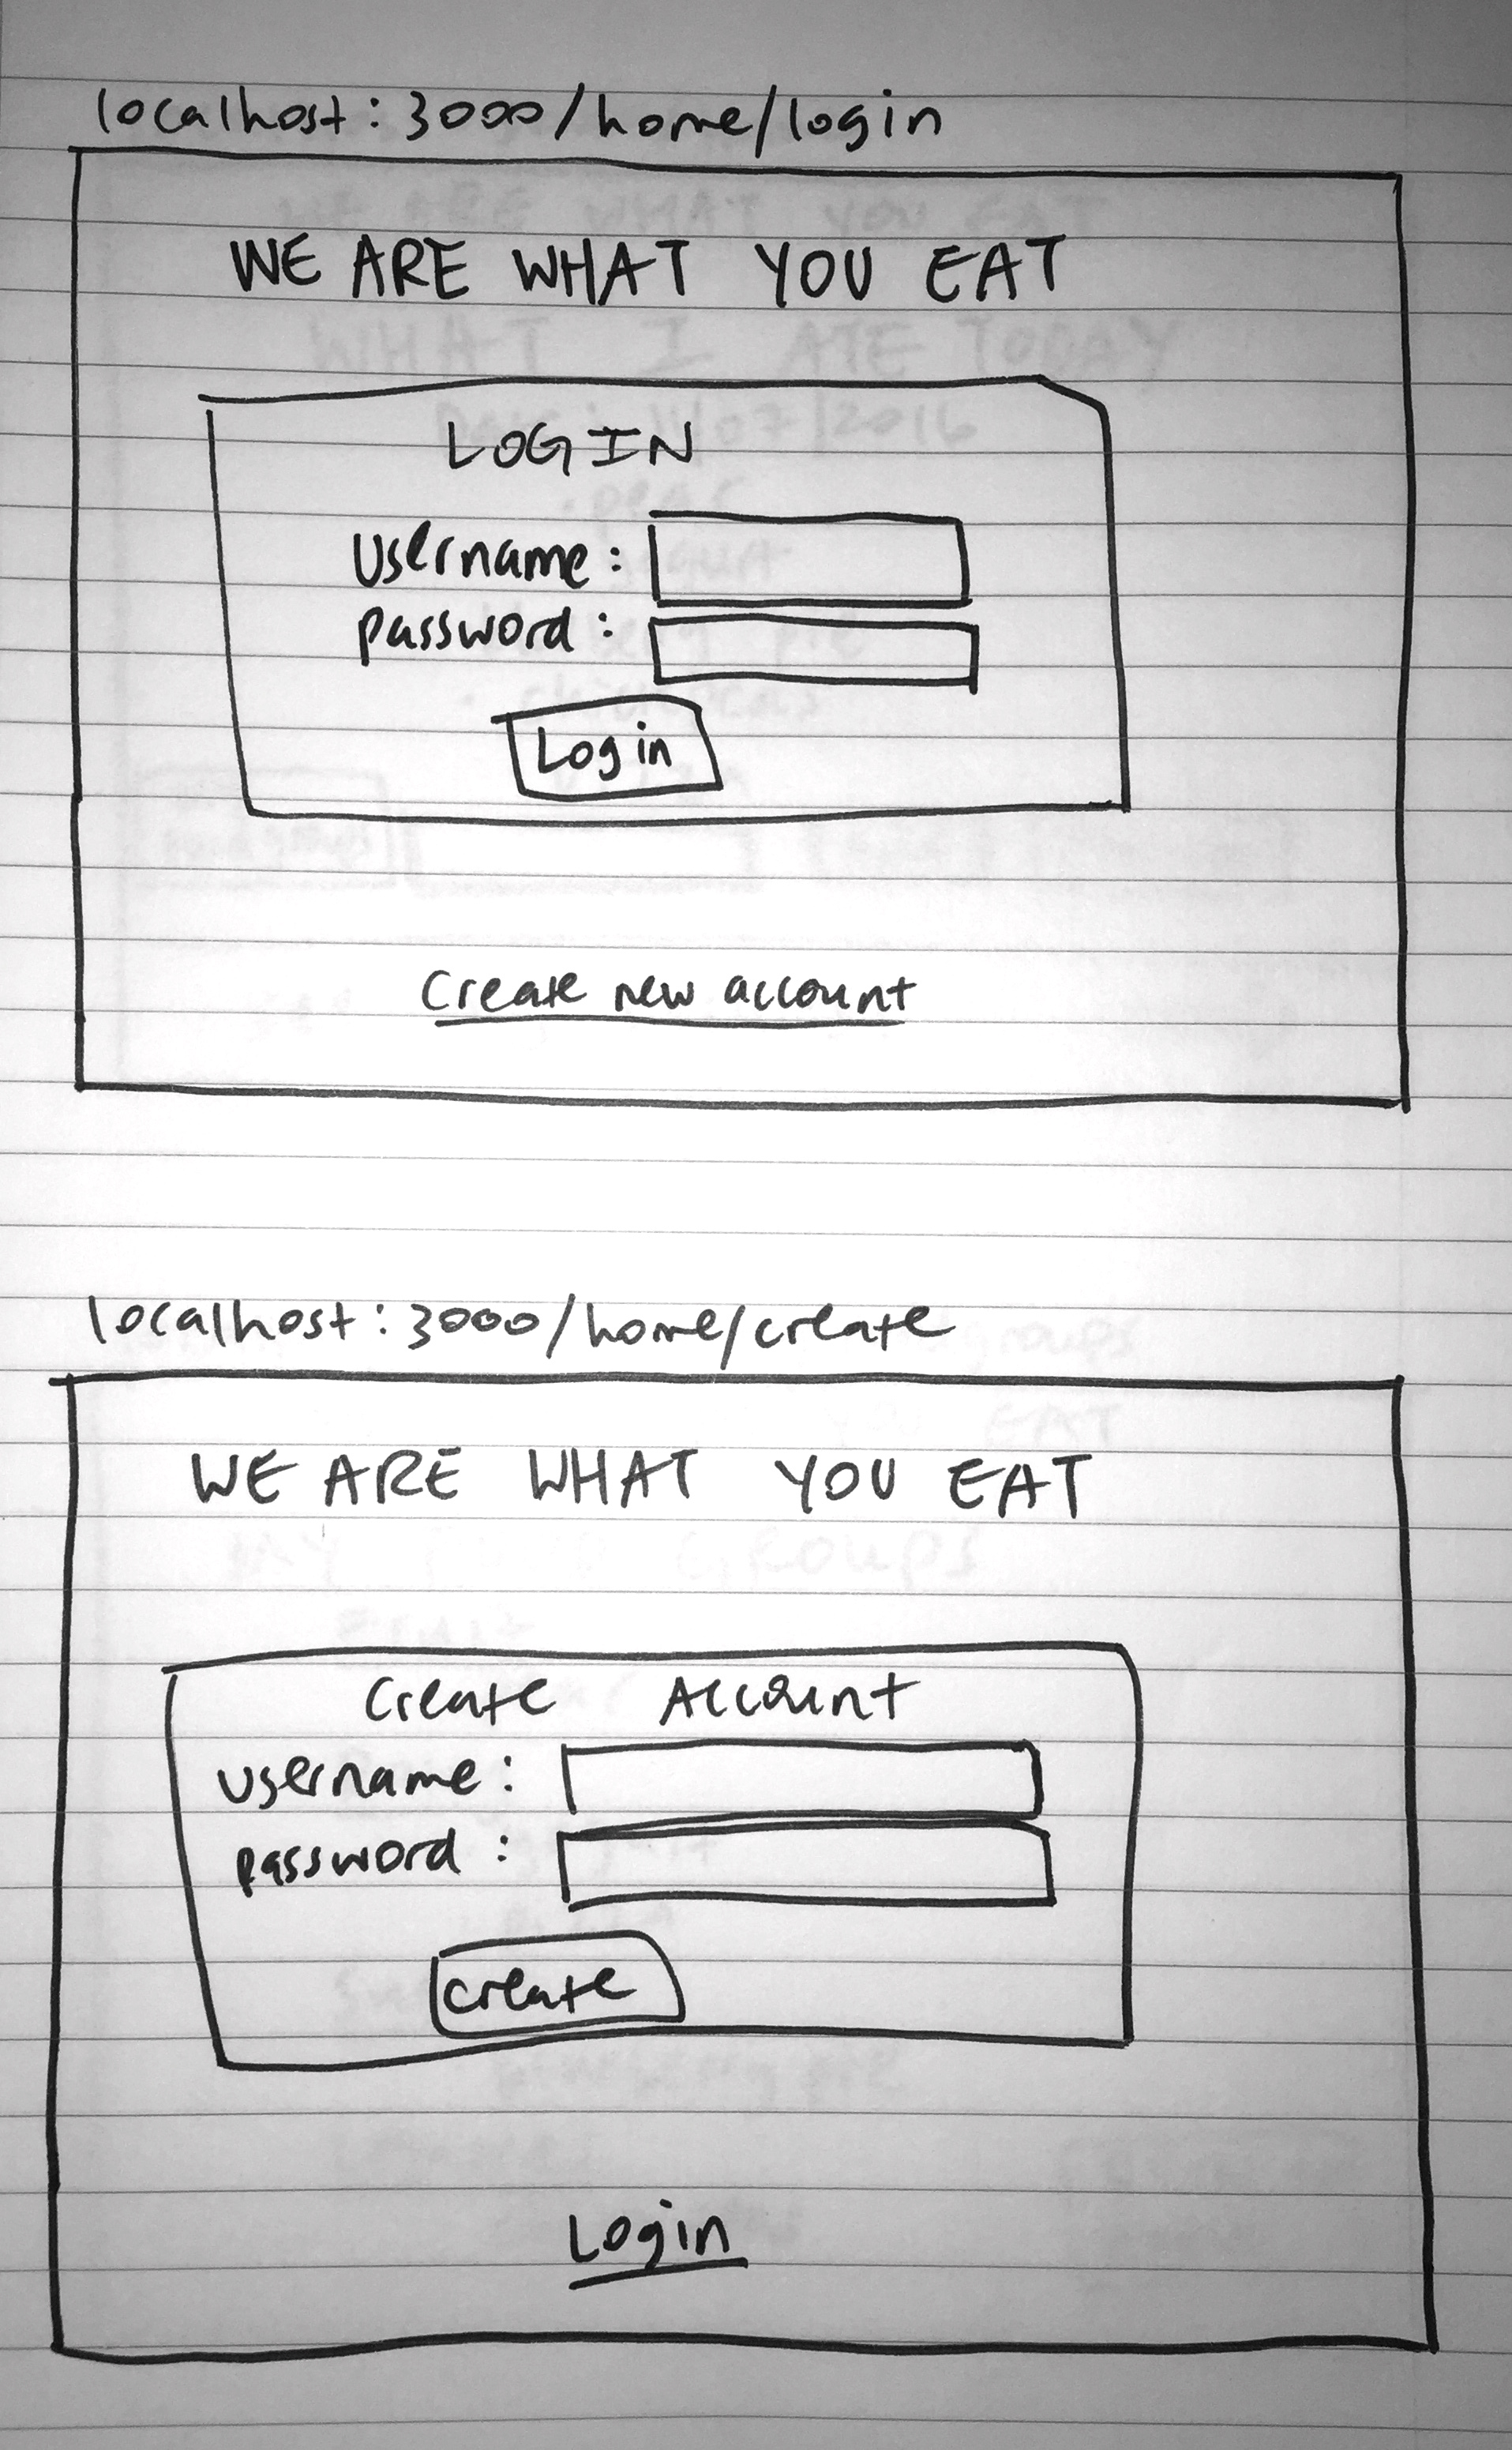 localhost:3000/home/login
WE ARE WHAT YOU EAT
LOGIN
Username:
password:
Log in
Create new account
localhost:3000/home/create
WE ARE WHAT YOU EAT
Create Account
username:
password:
create
Login